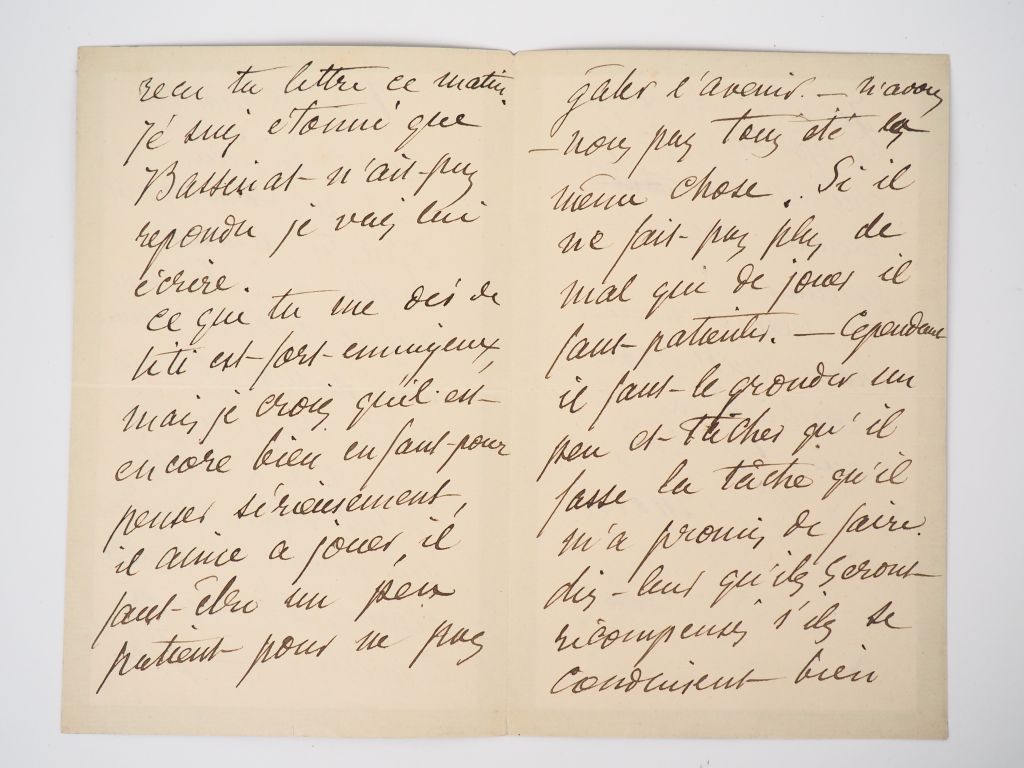 recu ta lettre ce matin
Je suis etonné que
Bassinat n'ait pas
repondu je vais lui
écrire.
ce que tu me dis de
titi est fort ennuyeux,
mais je crois qu'il est
encore bien enfant pour
penser sérieusement,
il aime a jouer, il
faut être un peu
patient pour ne pas
gater l'avenir. — n'avons
— nous pas tous été la
même chose. Si il
ne fait pas plus de
mal que de jouer il
faut patienter. — Cependant
il faut le gronder un
peu et tâcher qu'il
fasse la tâche qu'il
m'a promis de faire.
dis-leur qu'ils seront
récompensés s'ils se
conduisent bien